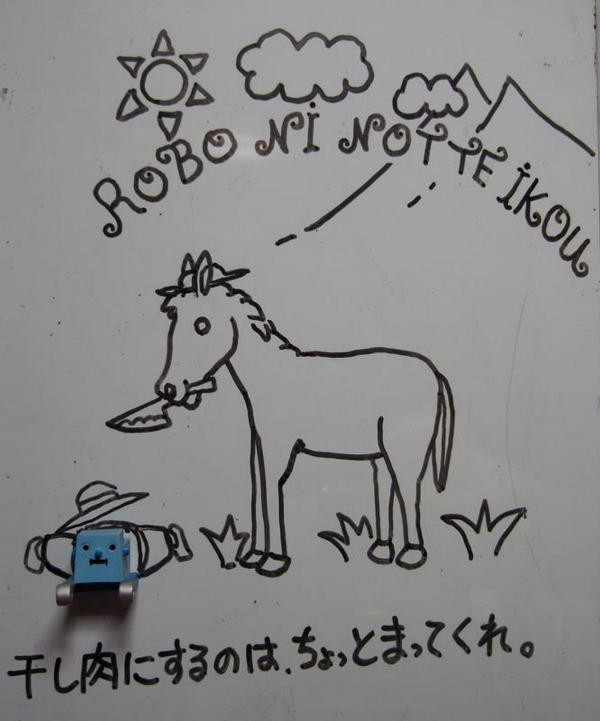 ROBO Ni NOTTE iKOU
干し肉にするのは、ちょっとまってくれ。